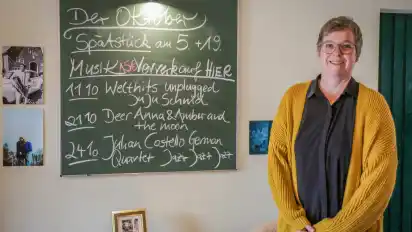 Der Oktober
Spätstück am 5. + 19.
Musik Vorverkauf HIER
11 10 Welthits unplugged
Inja Schmid
21 10 Deer Anna & Amber and
the moon
24 10 Julian Costello German
Quartet Jazz Jazz Jazz